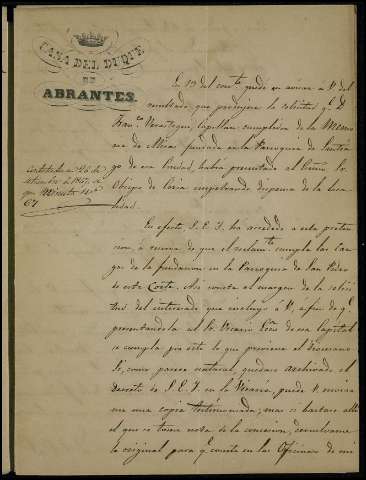 CASA DEL DUQUE
DE
ABRANTES.
En 19 del corrte. quedé en avisar a V. del
resultado que produjera la solicitud qe. D.
Franco. Verastegui, Capellan cumplidor de la Memo
ria de Misas fundada en la Parroquia de Santia
go de esa Ciudad, habia presentado al Exmo. Sr.
Obispo de Coria impetrando dispensa de la loca
lidad.
Contestada en 26 de
1867
En efecto S. E. I. ha accedido a esta preten
sion, á causa de que el reclamte. cumpla las Car
gas de la fundacion en la Parroquia de San Pedro
de esta Corte. Asi consta al margen de la solici
tud del interesado que incluyo á V. á fin de qe.
presentandola al Sr. Vicario Ecco. de esa Capital
se cumpla por este lo que previene el Diocesano
Si, como parece natural, quedase archivado el
Decreto de S. E. I. en la Vicaría, puede V. enviar
me una copia testimoniada; mas si bastase allí
el que se tome nota de la concesion, devuelvame
la original para qe. conste en las Oficinas de mi